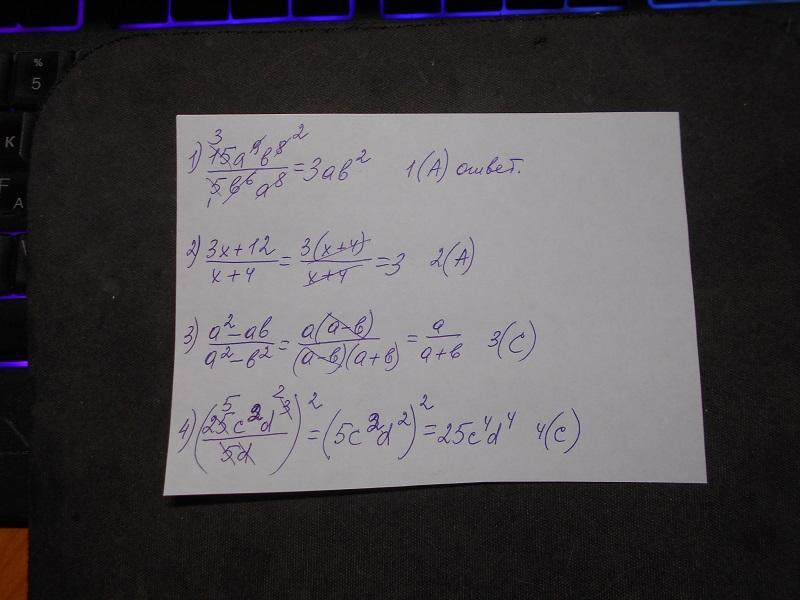 % 5
K
F A
1) 15a⁹b⁸/5b⁶a⁸ = 3ab² 1(A) ответ.
2) 3x+12/x+4 = 3(x+4)/x+4 = 3 2(A)
3) a²-ab/a²-b² = a(a-b)/(a-b)(a+b) = a/a+b 3(C)
4) (25c²d³/5d)² = (5c²d²)² = 25c⁴d⁴ 4(C)